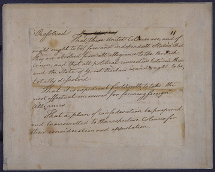 Resolved
That these United Colonies are, and of
right ought to be, free and independent States, that
they are absolved from all allegiance to the British
Crown, and that all political connection between them
and the State of Great Britain is, and ought to be,
totally dissolved.
That it is expedient forthwith to take the
most effectual measures for forming foreign
Alliances.
That a plan of confederation be prepared
and transmitted to the respective Colonies for
their consideration and approbation.